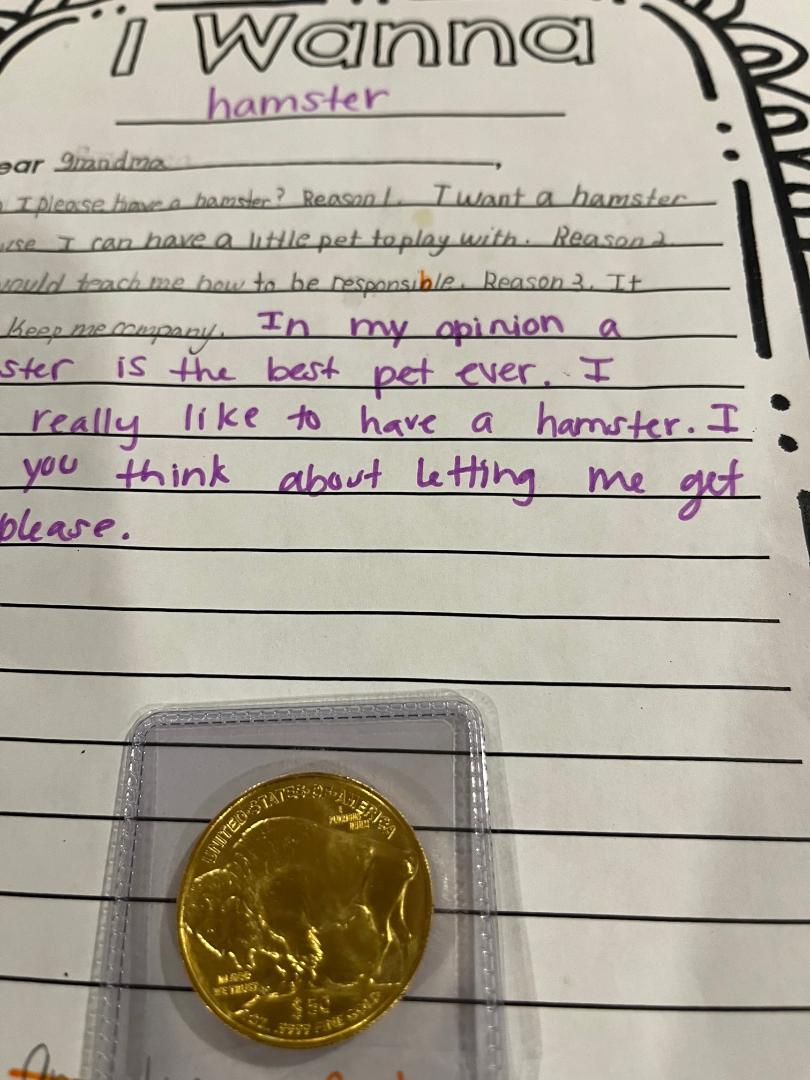 I Wanna
hamster
ear grandma,
I please have a hamster? Reason 1. I want a hamster
use I can have a little pet to play with. Reason 2.
would teach me how to be responsible. Reason 3. It
keep me company. In my opinion a
ster is the best pet ever. I
really like to have a hamster. I
you think about letting me get
please.
UNITED·STATES·OF·AMERICA
E PLURIBUS UNUM
IN GOD
WE TRUST
$50
1 OZ. .9999 FINE GOLD